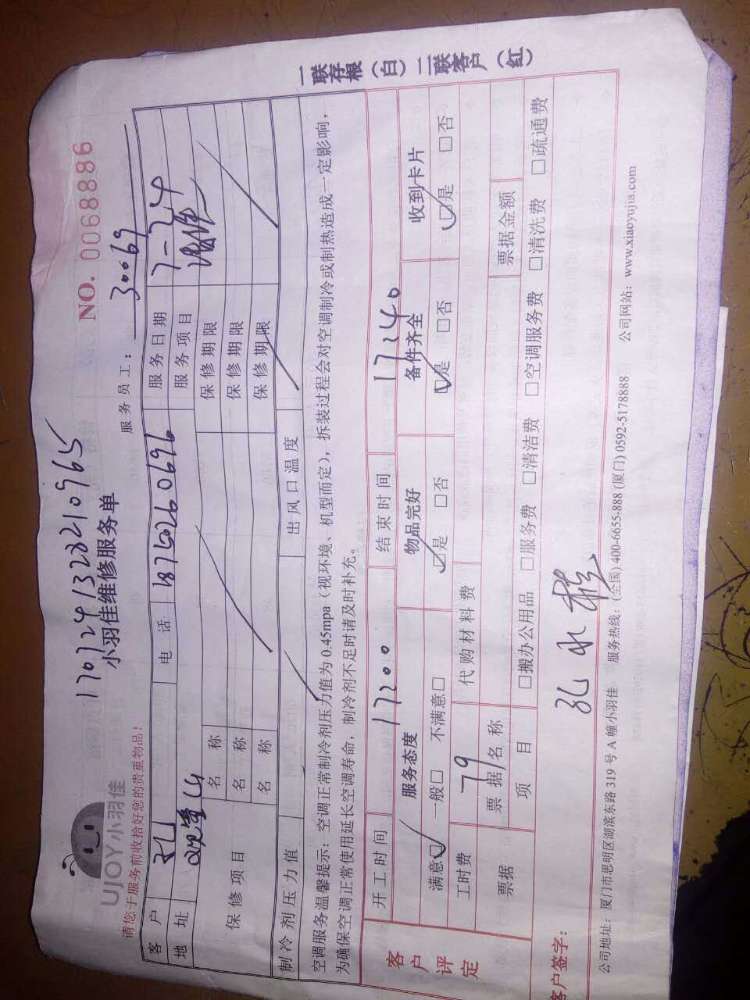 一联存根（白）二联客户（红）
UJOY小羽佳
请您于服务前收拾好您的贵重物品！
1707241328210965
小羽佳维修服务单
NO. 0068886
服务员工： 30069
客户 孔 电话 18750260696 服务日期 7-24
地址 服务项目
保修项目
名称 保修期限
名称 保修期限
名称 保修期限
制冷剂压力值 出风口温度
空调服务温馨提示：空调正常制冷剂压力值为 0.45mpa（视环境、机型而定），拆装过程会对空调制冷或制热造成一定影响，
为确保空调正常使用延长空调寿命，制冷剂不足时请及时补充。
客户评定
开工时间 17:00 结束时间 17:40
服务态度 物品完好 备件齐全 收到卡片
满意☑ 一般□ 不满意□ ☑是 □否 ☑是 □否 ☑是 □否
工时费 79 代购材料费
票据 票据名称 票据金额
项目 □搬办公用品 □服务费 □清洁费 □空调服务费 □清洗费 □疏通费
客户签字： 孔水
公司地址：厦门市思明区湖滨东路 319 号 A 幢小羽佳 服务热线：(全国) 400-6655-888 (厦门) 0592-5178888 公司网站：www.xiaoyujia.com